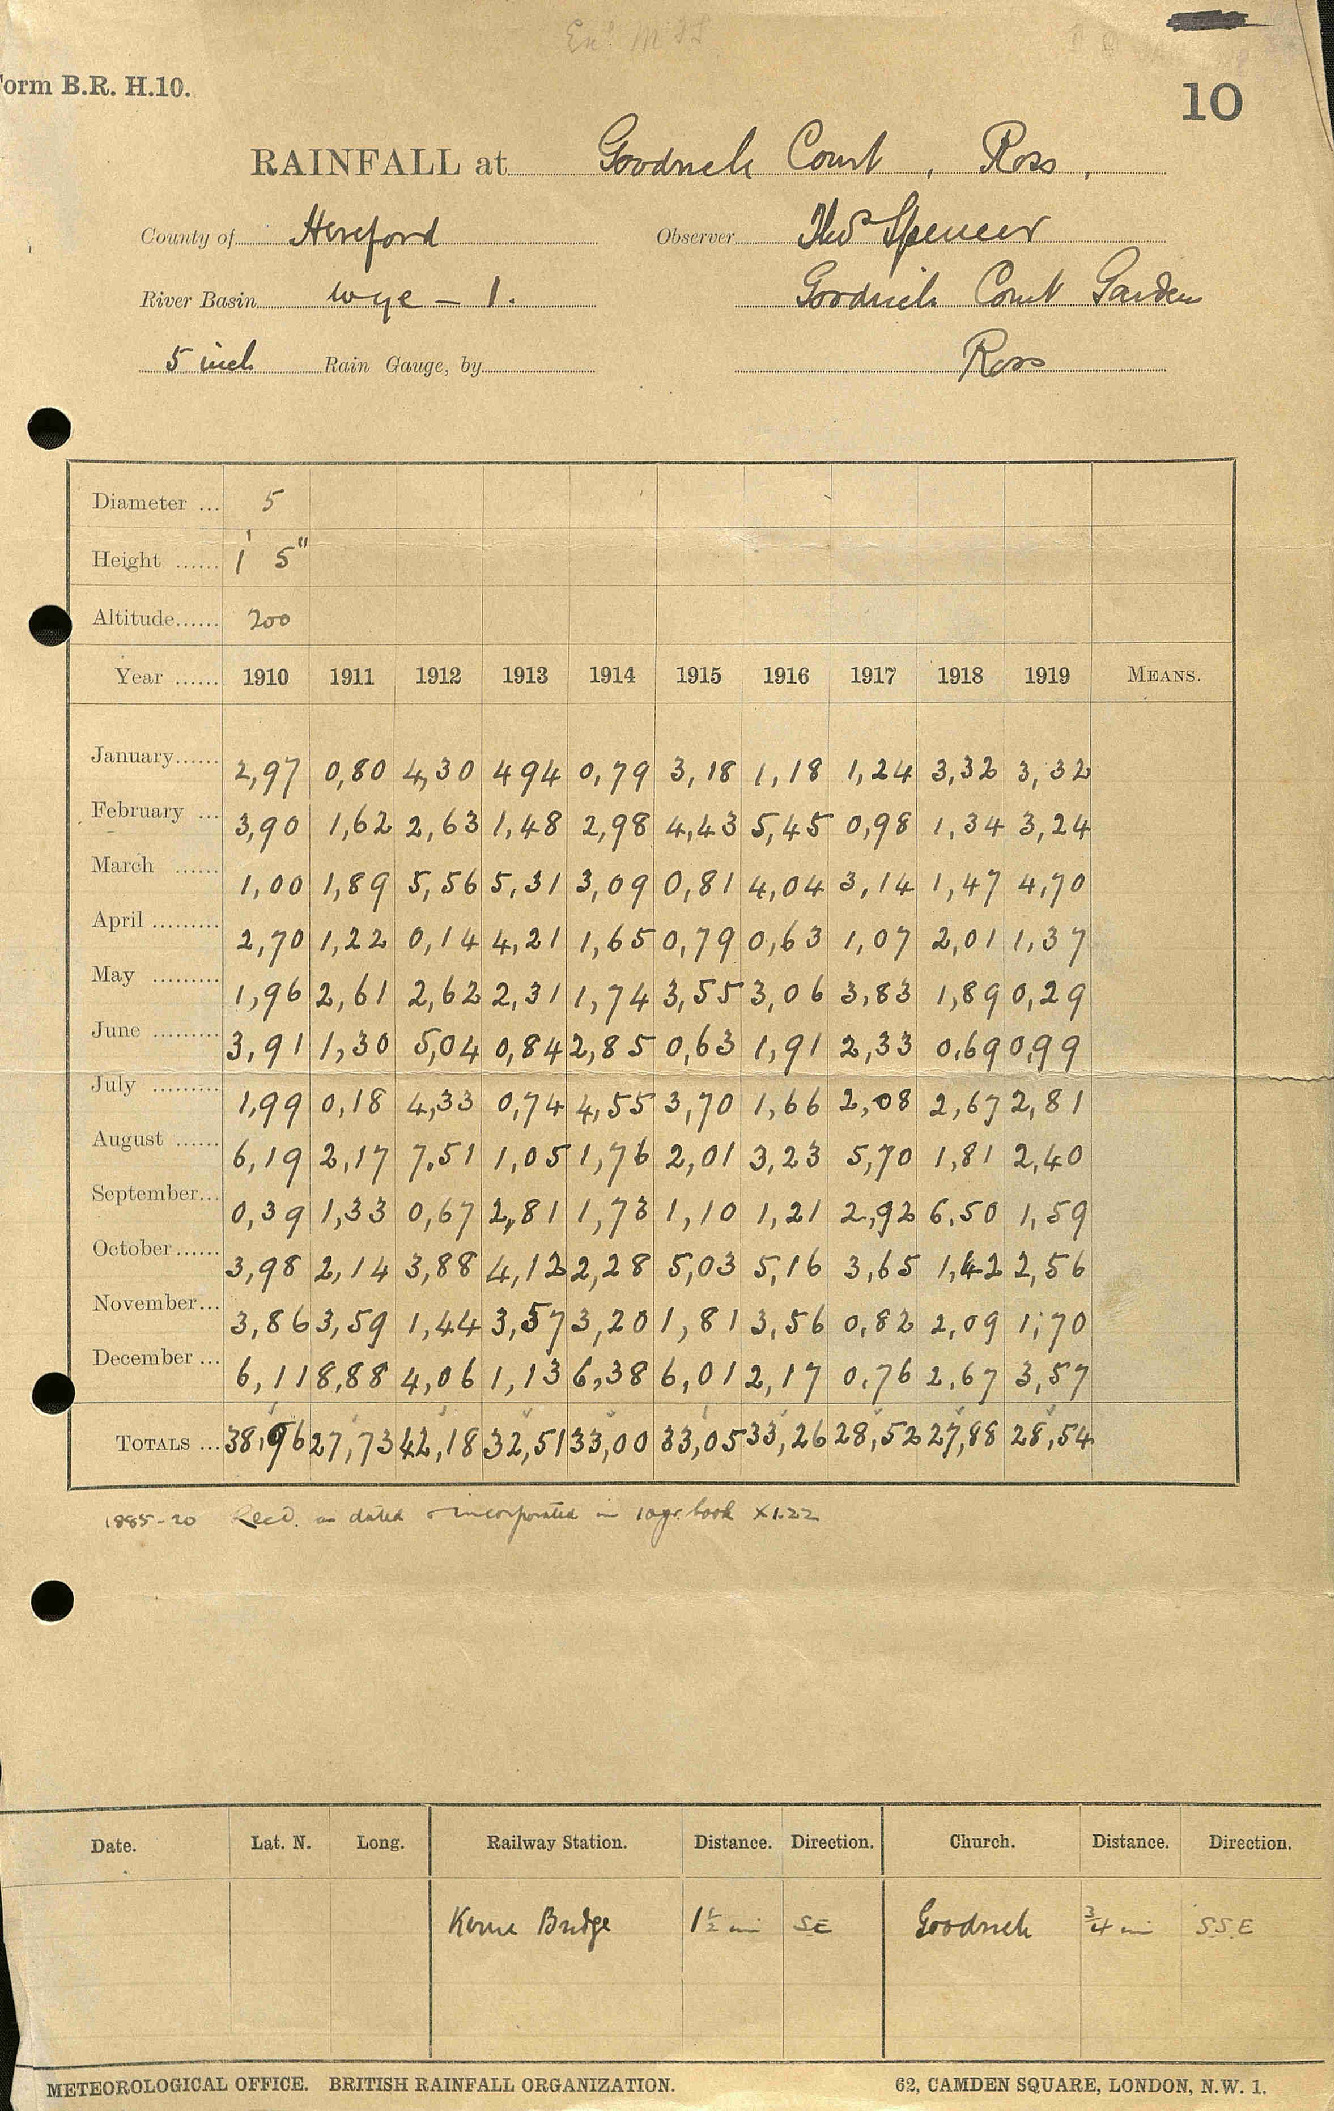 Form B.R. H.10.
10
RAINFALL at Goodrich Court, Ross,
County of Hereford Observer Thos Spencer
River Basin Wye - 1. Goodrich Court Gardens
5 inch Rain Gauge, by Ross
Diameter ... 5
Height ...... 1' 5"
Altitude...... 200
Year ...... 1910 1911 1912 1913 1914 1915 1916 1917 1918 1919 MEANS.
January...... 2,97 0,80 4,30 494 0,79 3,18 1,18 1,24 3,32 3,32
February ... 3,90 1,62 2,63 1,48 2,98 4,43 5,45 0,98 1,34 3,24
March ...... 1,00 1,89 5,56 5,31 3,09 0,81 4,04 3,14 1,47 4,70
April ......... 2,70 1,22 0,14 4,21 1,65 0,79 0,63 1,07 2,01 1,37
May ......... 1,96 2,61 2,62 2,31 1,74 3,55 3,06 3,83 1,89 0,29
June ......... 3,91 1,30 5,04 0,84 2,85 0,63 1,91 2,33 0,69 0,99
July ......... 1,99 0,18 4,33 0,74 4,55 3,70 1,66 2,08 2,67 2,81
August ...... 6,19 2,17 7.51 1,05 1,76 2,01 3,23 5,70 1,81 2,40
September... 0,39 1,33 0,67 2,81 1,73 1,10 1,21 2,92 6,50 1,59
October...... 3,98 2,14 3,88 4,12 2,28 5,03 5,16 3,65 1,42 2,56
November... 3,86 3,59 1,44 3,57 3,20 1,81 3,56 0,82 2,09 1,70
December ... 6,11 8,88 4,06 1,13 6,38 6,01 2,17 0,76 2,67 3,57
TOTALS ... 38,96 27,73 42,18 32,51 33,00 33,05 33,26 28,52 27,88 28,54
1885-20 Recd. as dated & incorporated in 10yr. book X1.22
Date. Lat. N. Long. Railway Station. Distance. Direction. Church. Distance. Direction.
Kerne Bridge 1½ mi SE Goodrich ¾ mi S.S.E
METEOROLOGICAL OFFICE. BRITISH RAINFALL ORGANIZATION. 62, CAMDEN SQUARE, LONDON, N.W. 1.